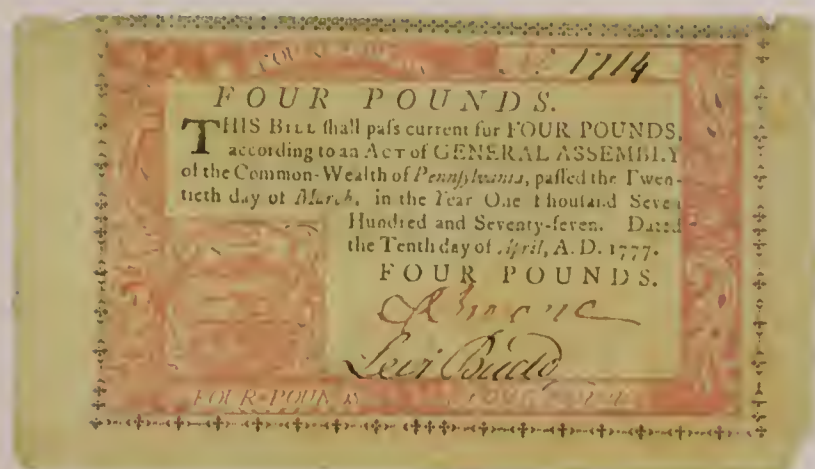 1714
FOUR POUNDS.
THIS BILL ſhall paſs current for FOUR POUNDS,
according to an ACT of GENERAL ASSEMBLY
of the Common-Wealth of Pennſylvania, paſſed the Twen-
tieth day of March, in the Year One Thouſand Seven
Hundred and Seventy-ſeven. Dated
the Tenth day of April, A. D. 1777.
FOUR POUNDS.
Levi Budd
FOUR-POUNDS